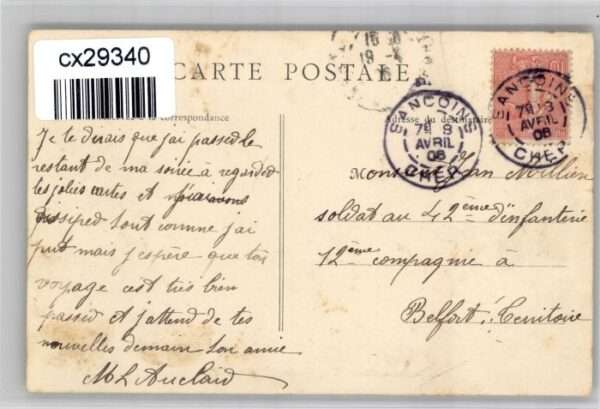 cx29340
CARTE POSTALE
la correspondance
Adresse du destinataire
SANCOINS
7E 9
AVRIL
06
CHER
SANCOINS
7E 9
AVRIL
06
CHER
Je te dirais que j'ai passed le
restant de ma soirée à regarded
les jolies cartes et
tout comme j'ai
put mais j'espère que ton
voyage c'est très bien
passed et j'attend de tes
nouvelles demain Ton amie
ML Auclair
Monsieur Jean Millien
soldat au 42ème d'infanterie
12ème compagnie à
Belfort. Territoire